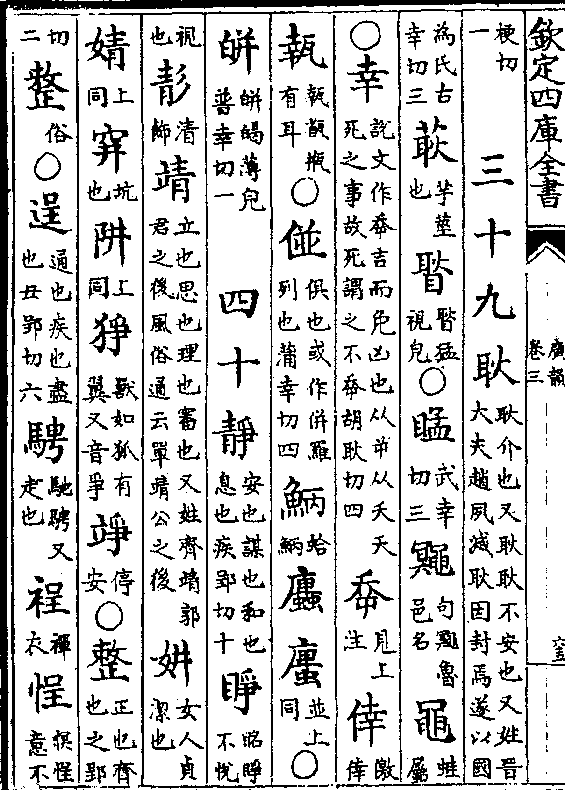 欽定四庫全書 廣韻 卷三
梗切一 三十九耿 耿介也又耿耿不安也又姓晉大夫趙夙滅耿因封焉遂以國
為氏古幸切三 芋莖也 猛視皃 ○ 武幸切三 鼆 句鼆魯邑名 黽 蛙屬
○幸 說文作㚔吉而免凶也从屰从夭夭死之事故死謂之不㚔胡耿切四 㚔 見上注 倖 儌倖
㼬 㼬甂瓶有耳 ○ 俱也或作併羅列也蒲幸切四 蛤 蠯 並上同 ○
皏 皏薄皃普幸切一 四十靜 安也謀也和也息也疾郢切十 睜 眳睜不悅
視也 清飾 靖 立也思也理也審也又姓齊靖郭君之後風俗通云單靖公之後 妌 女人貞潔也
婧 上同 穽 坑也 阱 上同 猙 獸如狐有翼又音爭 竫 停安 ○ 整 正也齊也之郢
切二 整 俗 ○ 逞 通也疾也盡也丑郢切六 騁 馳騁又走也 裎 襌衣 悜 悮悜意不